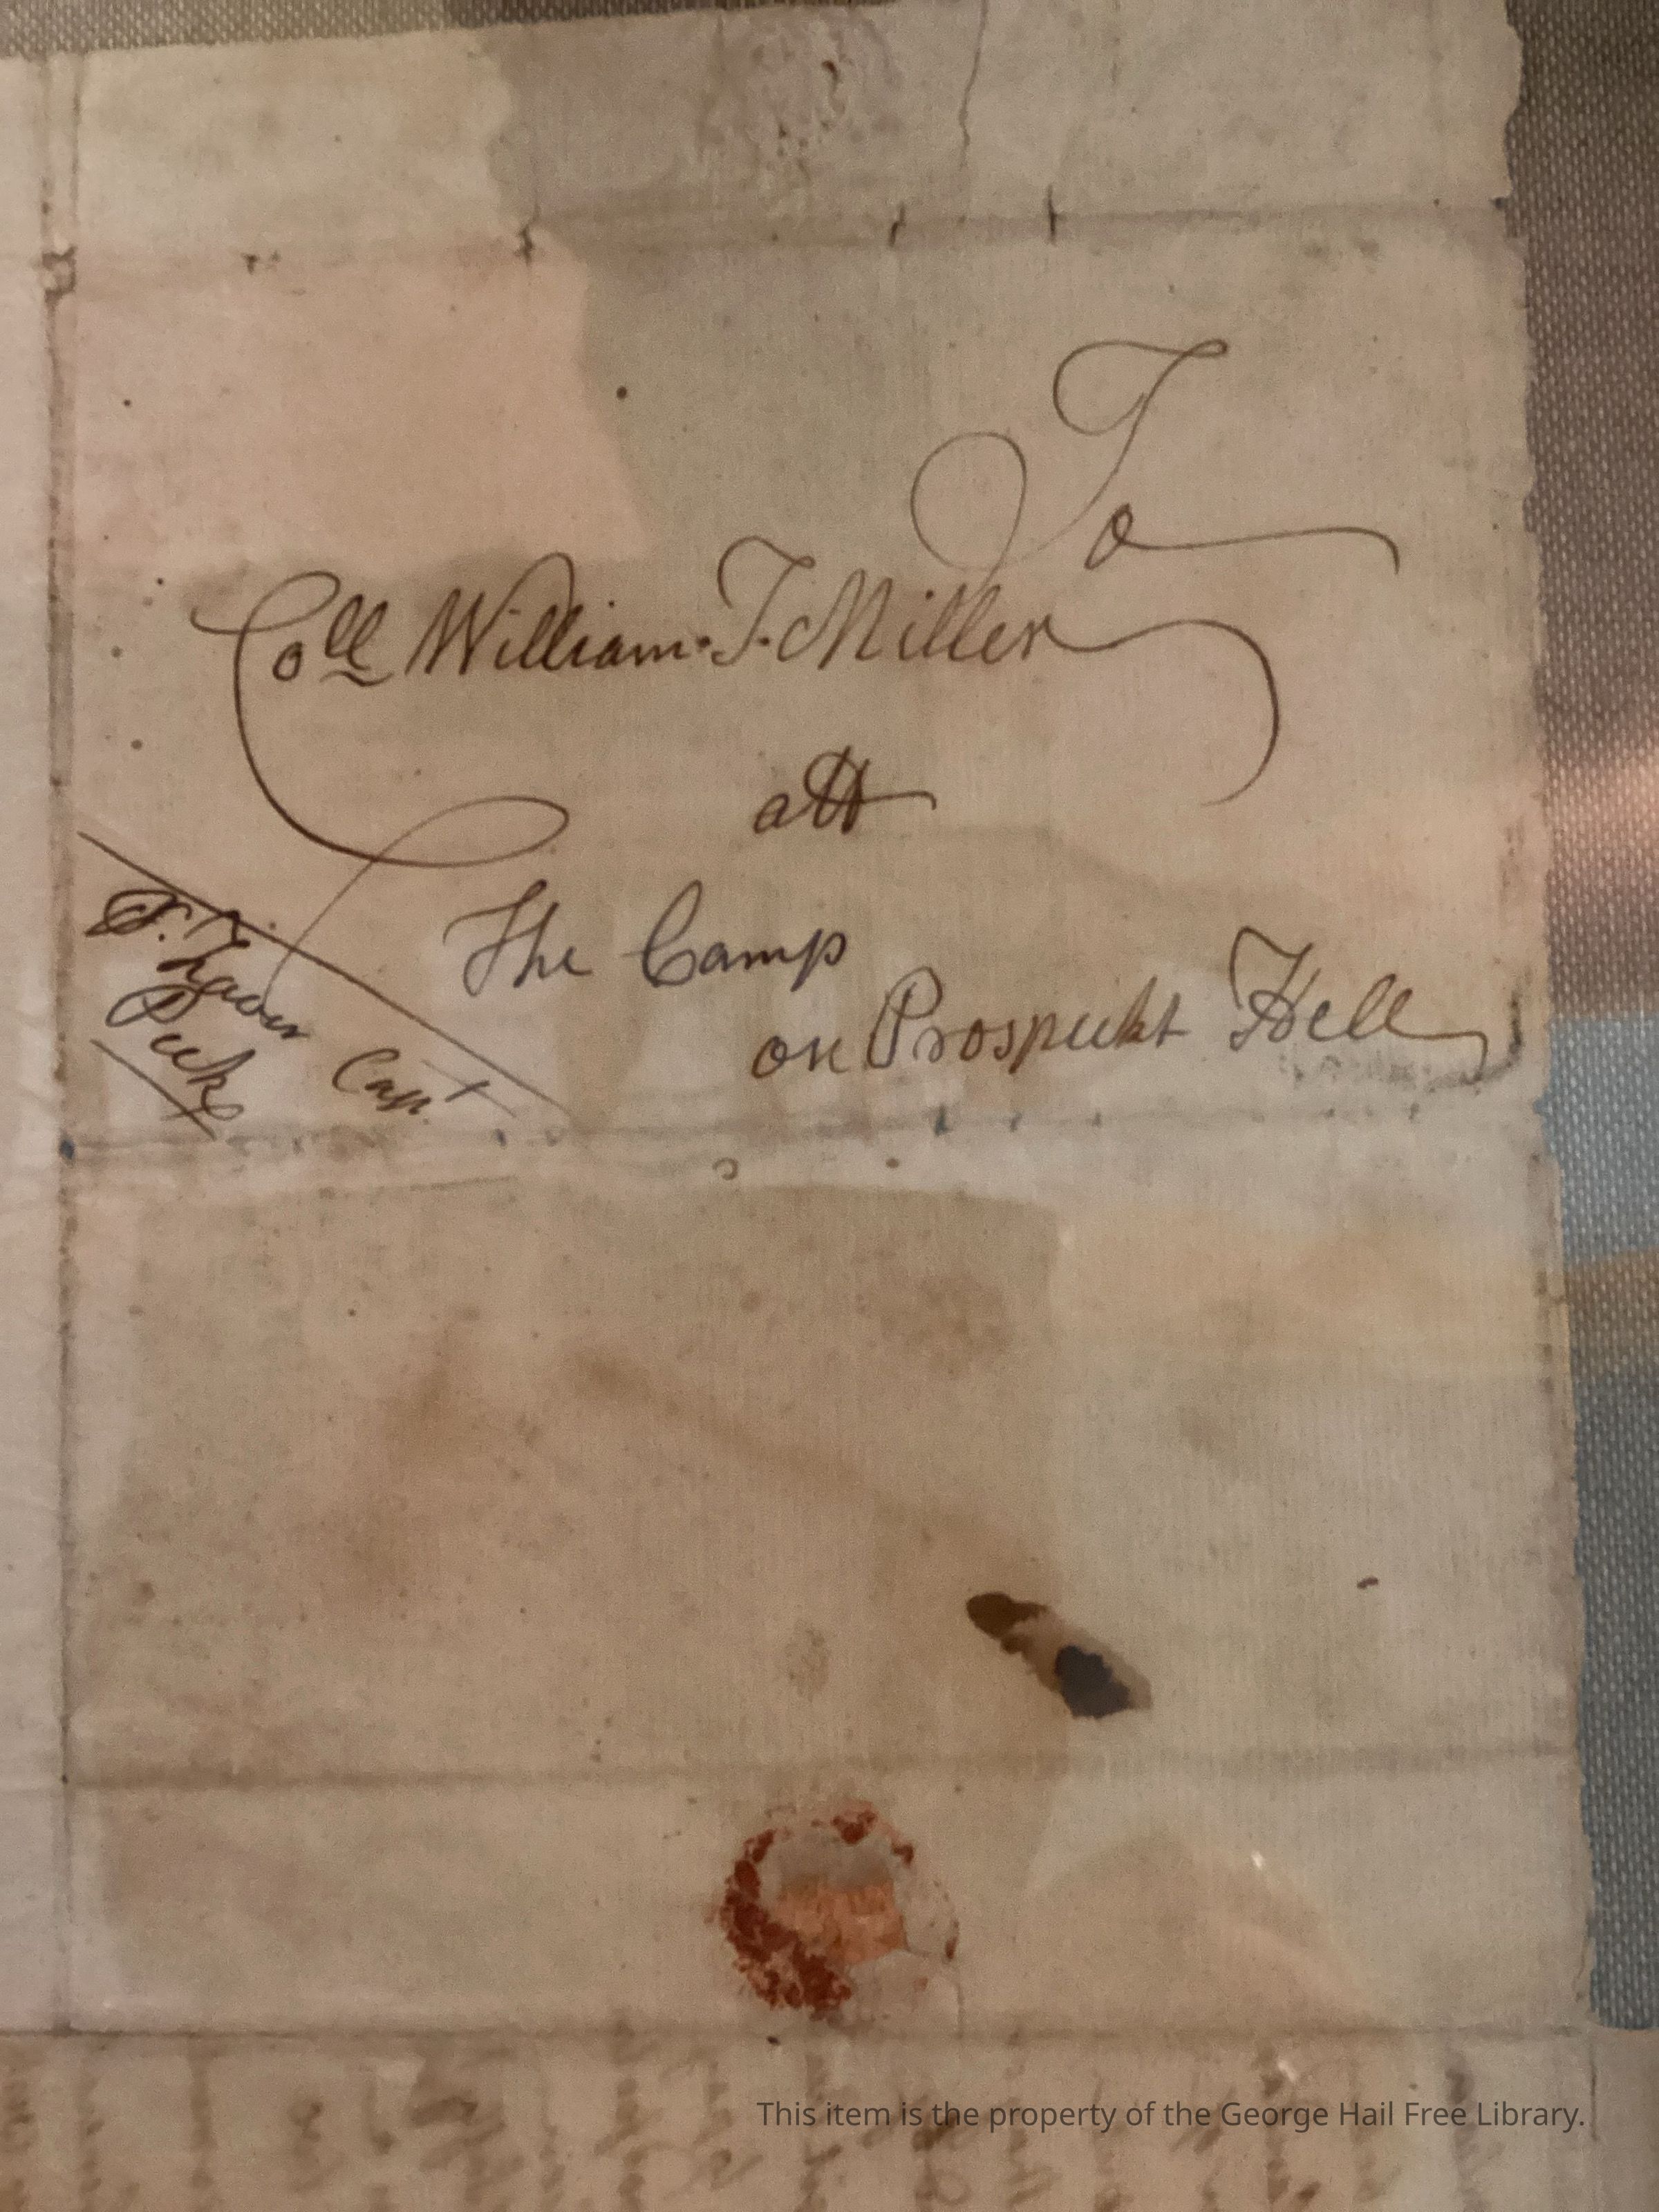 To
Coll William. T. Miller
att
The Camp
on Prospeckt Hell
P. Favour Capt
Peek
This item is the property of the George Hail Free Library.